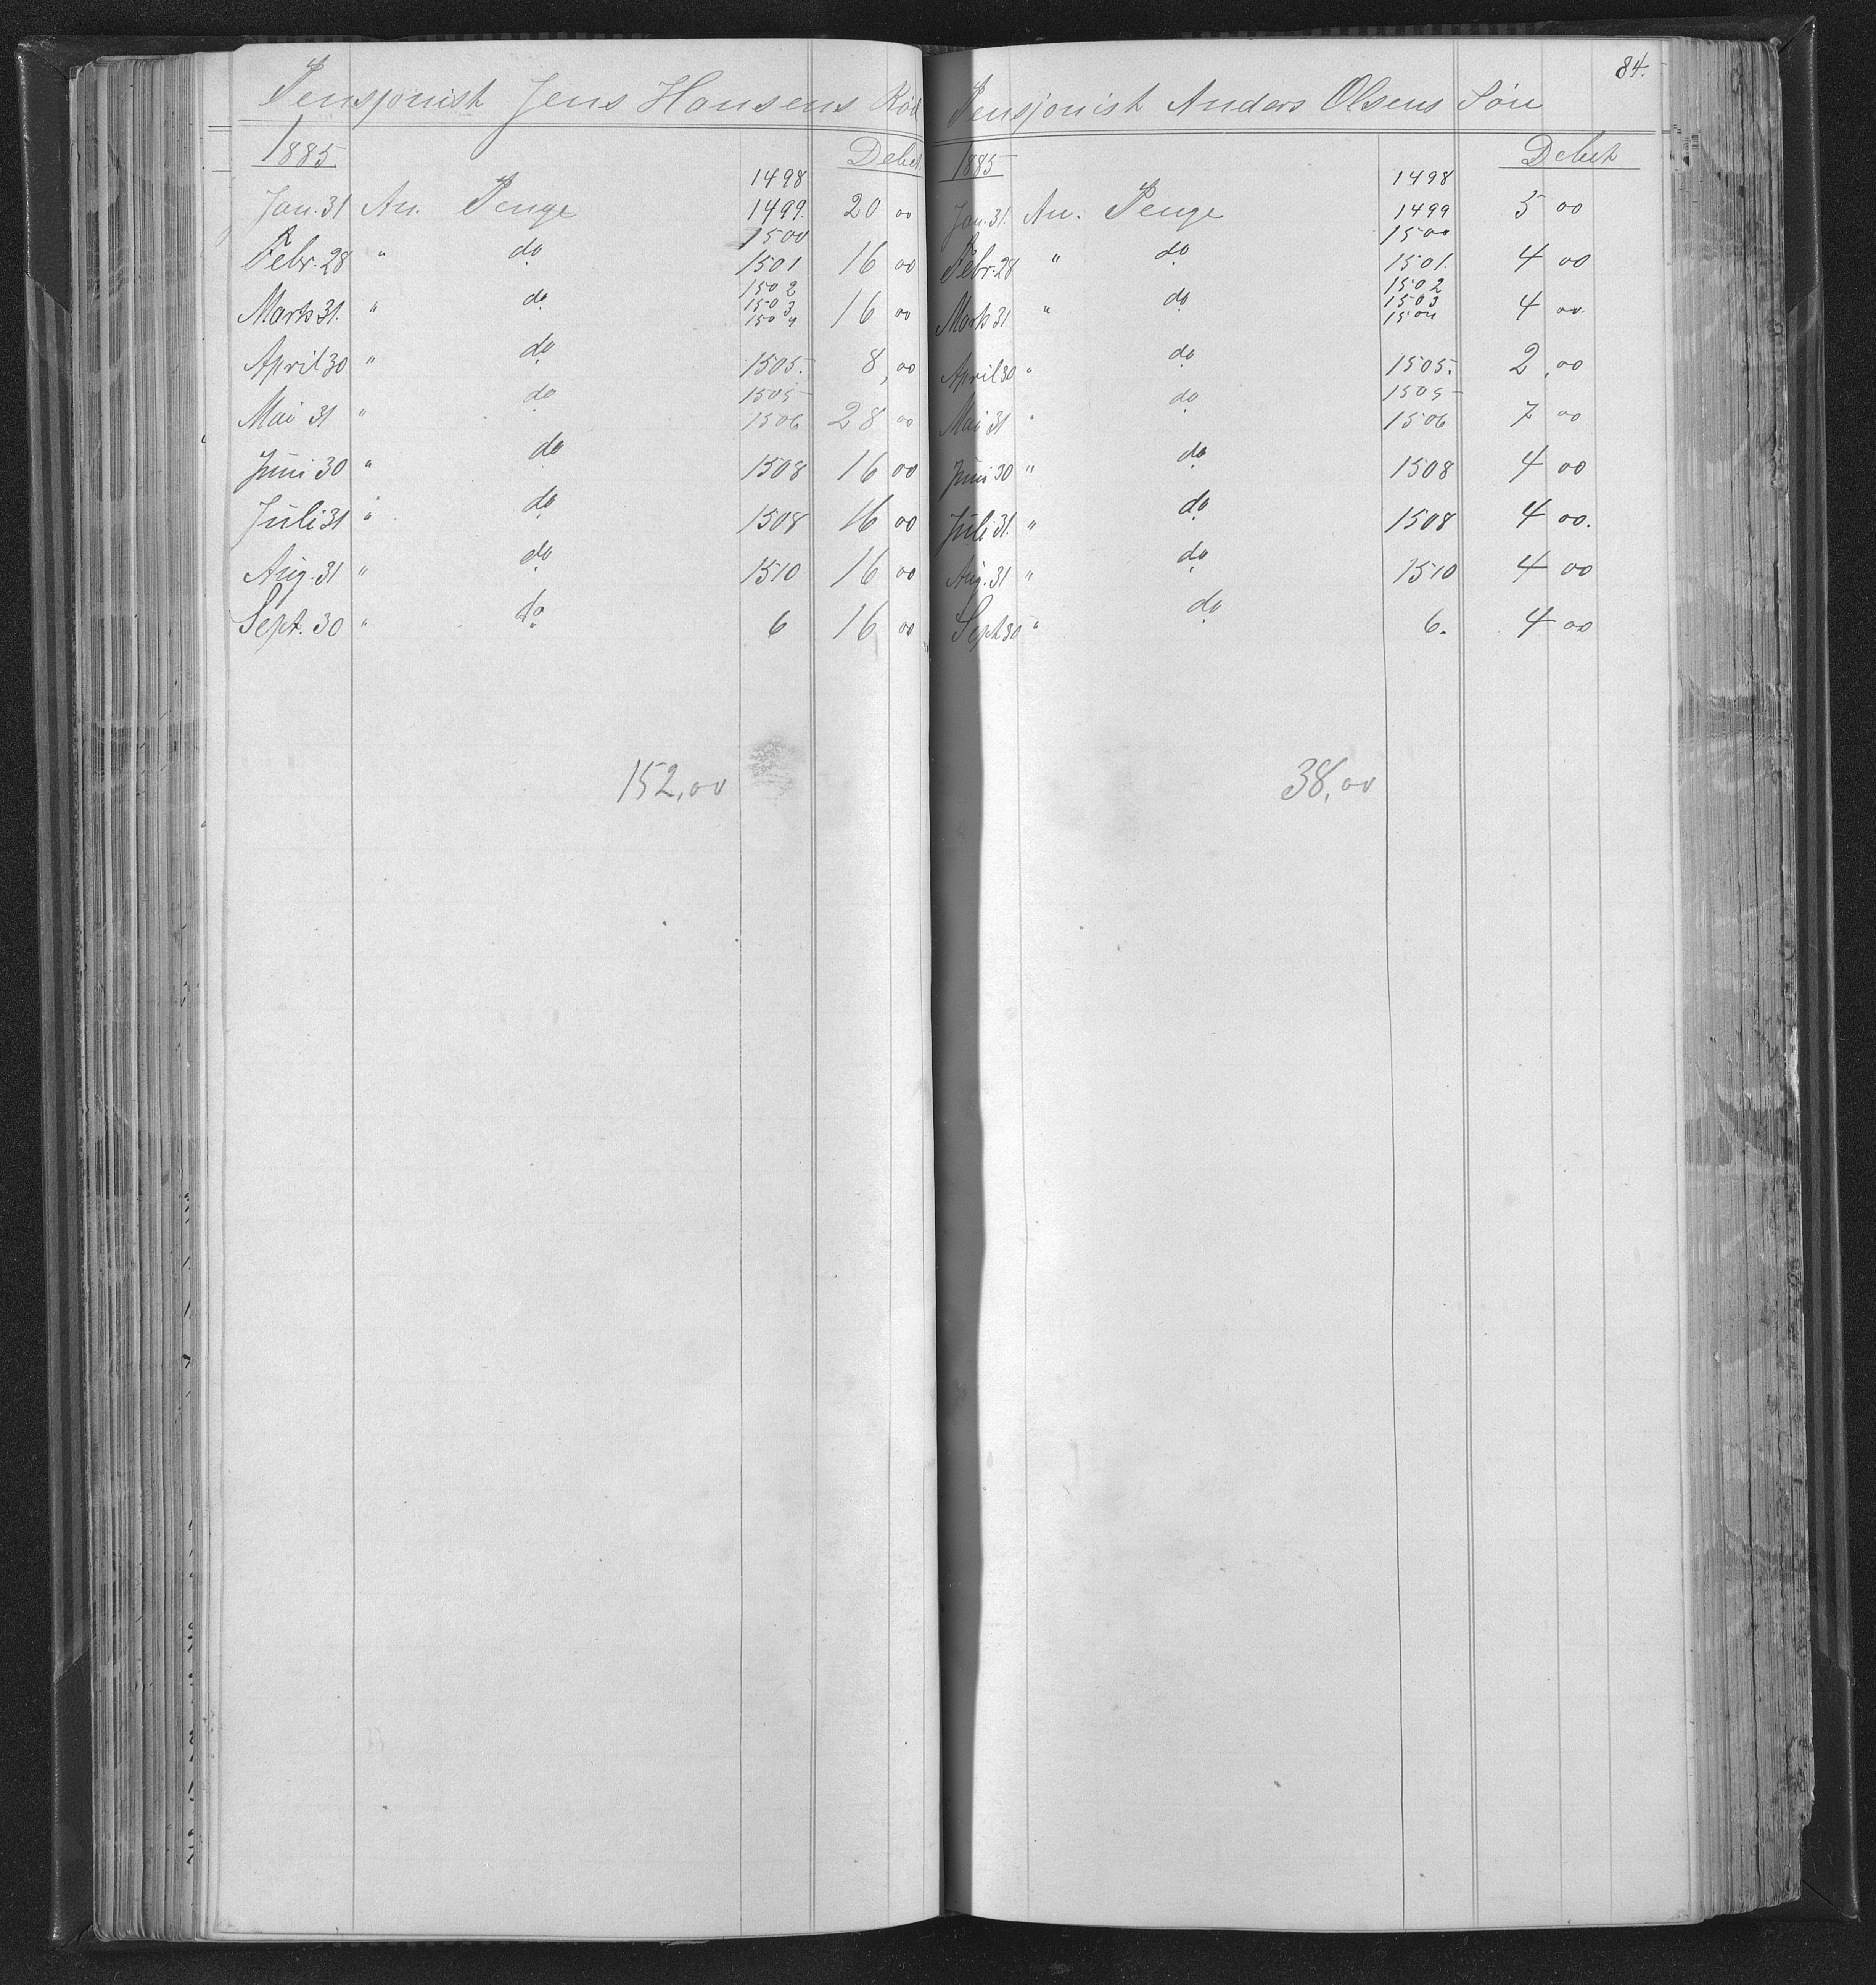 Pensjonist Jens Hansens Rød
1885 Debet
1498
Jan. 31 An. Penge 1499. 20 00
1500
Febr. 28 " do 1501 16 00
1502
1503
Marts 31. " do 1504 16 00
April 30 " do 1505. 8,00
1505
Mai 31 " do 1506 28 00
Juni 30 " do 1508 16 00
Juli 31 " do 1508 16 00
Aug. 31 " do 1510 16 00
Sept. 30 " do 6 16 00
152,00
84.
Pensjonist Anders Olsens Søn
1885 Debet
1498
Jan. 31. An. Penge 1499 5 00
1500
Febr. 28 " do 1501. 4 00
1502
1503
Marts 31 " do 1504 4 00.
April 30 " do 1505. 2,00
1505
Mai 31 " do 1506 7 00
Juni 30 " do 1508 4 00
Juli 31. " do 1508 4 00.
Aug. 31 " do 1510 4 00
Sept 30 " do 6. 4 00
38,00